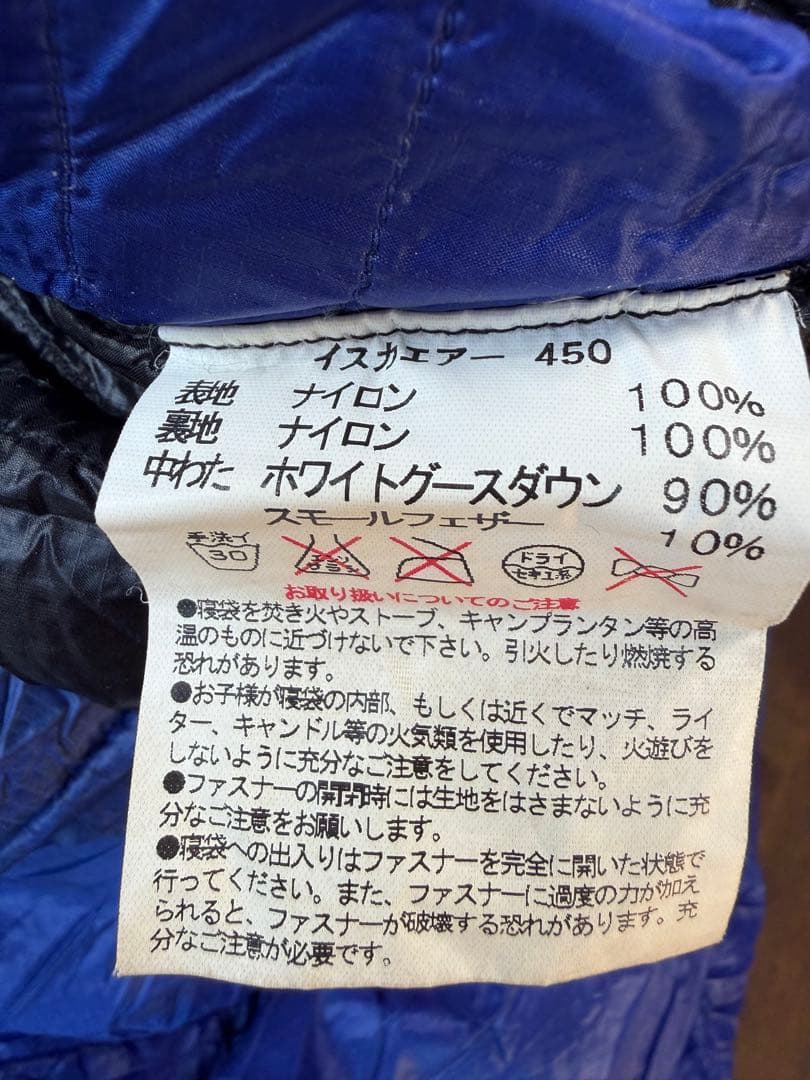 イスカエアー 450
表地 ナイロン 100%
裏地 ナイロン 100%
中わた ホワイトグースダウン 90%
スモールフェザー 10%
手洗イ 30 エンソ サラシ ドライ セキユ系
お取り扱いについてのご注意
●寝袋を焚き火やストーブ、キャンプランタン等の高
温のものに近づけないで下さい。引火したり燃焼する
恐れがあります。
●お子様が寝袋の内部、もしくは近くでマッチ、ライ
ター、キャンドル等の火気類を使用したり、火遊びを
しないように充分なご注意をしてください。
●ファスナーの開閉時には生地をはさまないように充
分なご注意をお願いします。
●寝袋への出入りはファスナーを完全に開いた状態で
行ってください。また、ファスナーに過度の力が加え
られると、ファスナーが破壊する恐れがあります。充
分なご注意が必要です。